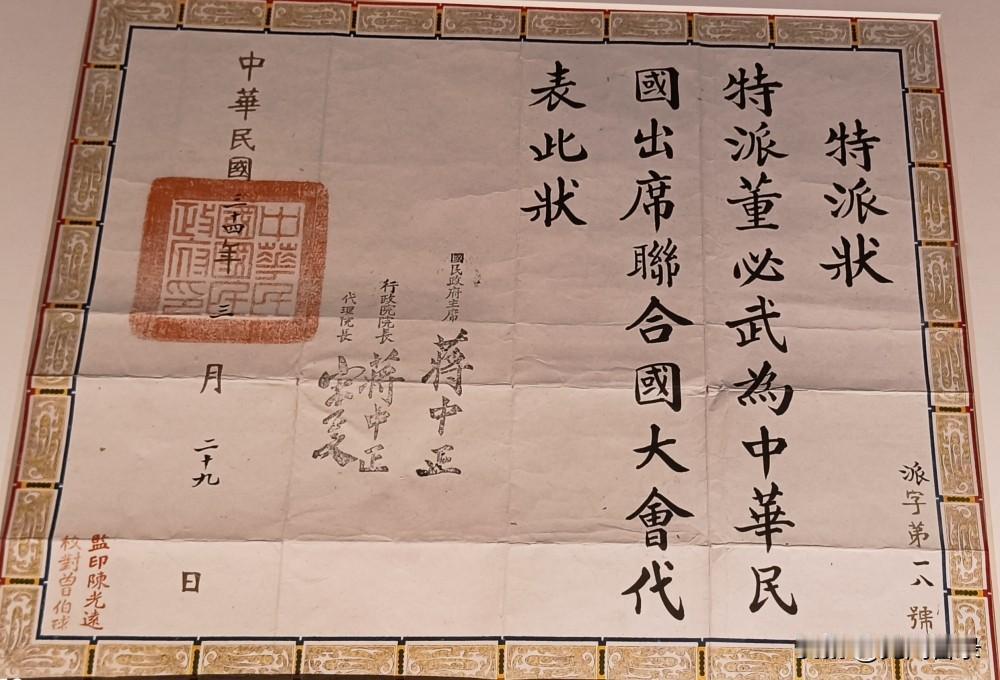 特派狀
特派董必武為中華民
國出席聯合國大會代
表此狀
國民政府主席 蔣中正
行政院院長 蔣中正
代理院長 宋子文
中華民國三十四年三月二十九日
中華民國國民政府印
派字第一八號
監印陳光遠
校對曾伯球